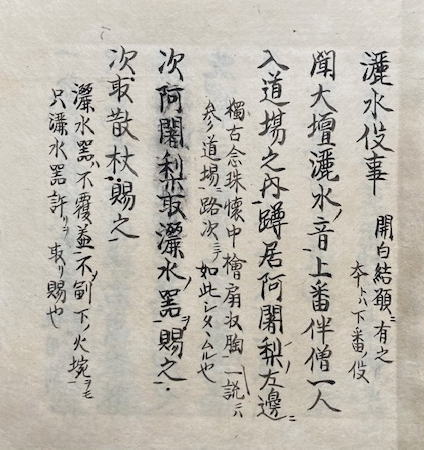 灑水役事　開白結願ニ有之
本ハ下番ノ役
聞大壇灑水ノ音上番伴僧一人
入道場之内蹲居阿闍梨ノ左邊ニ
獨古念珠懐中檜扇収胸一説ニハ
参道場ニ路次ニテ如此シタヽムル也
次阿闍梨取灑水ノ器ヲ賜之
次取散杖賜之
灑水器ハ不覆蓋不 下ノ火埦ヲモ
只灑水器許リヲ取リ賜也